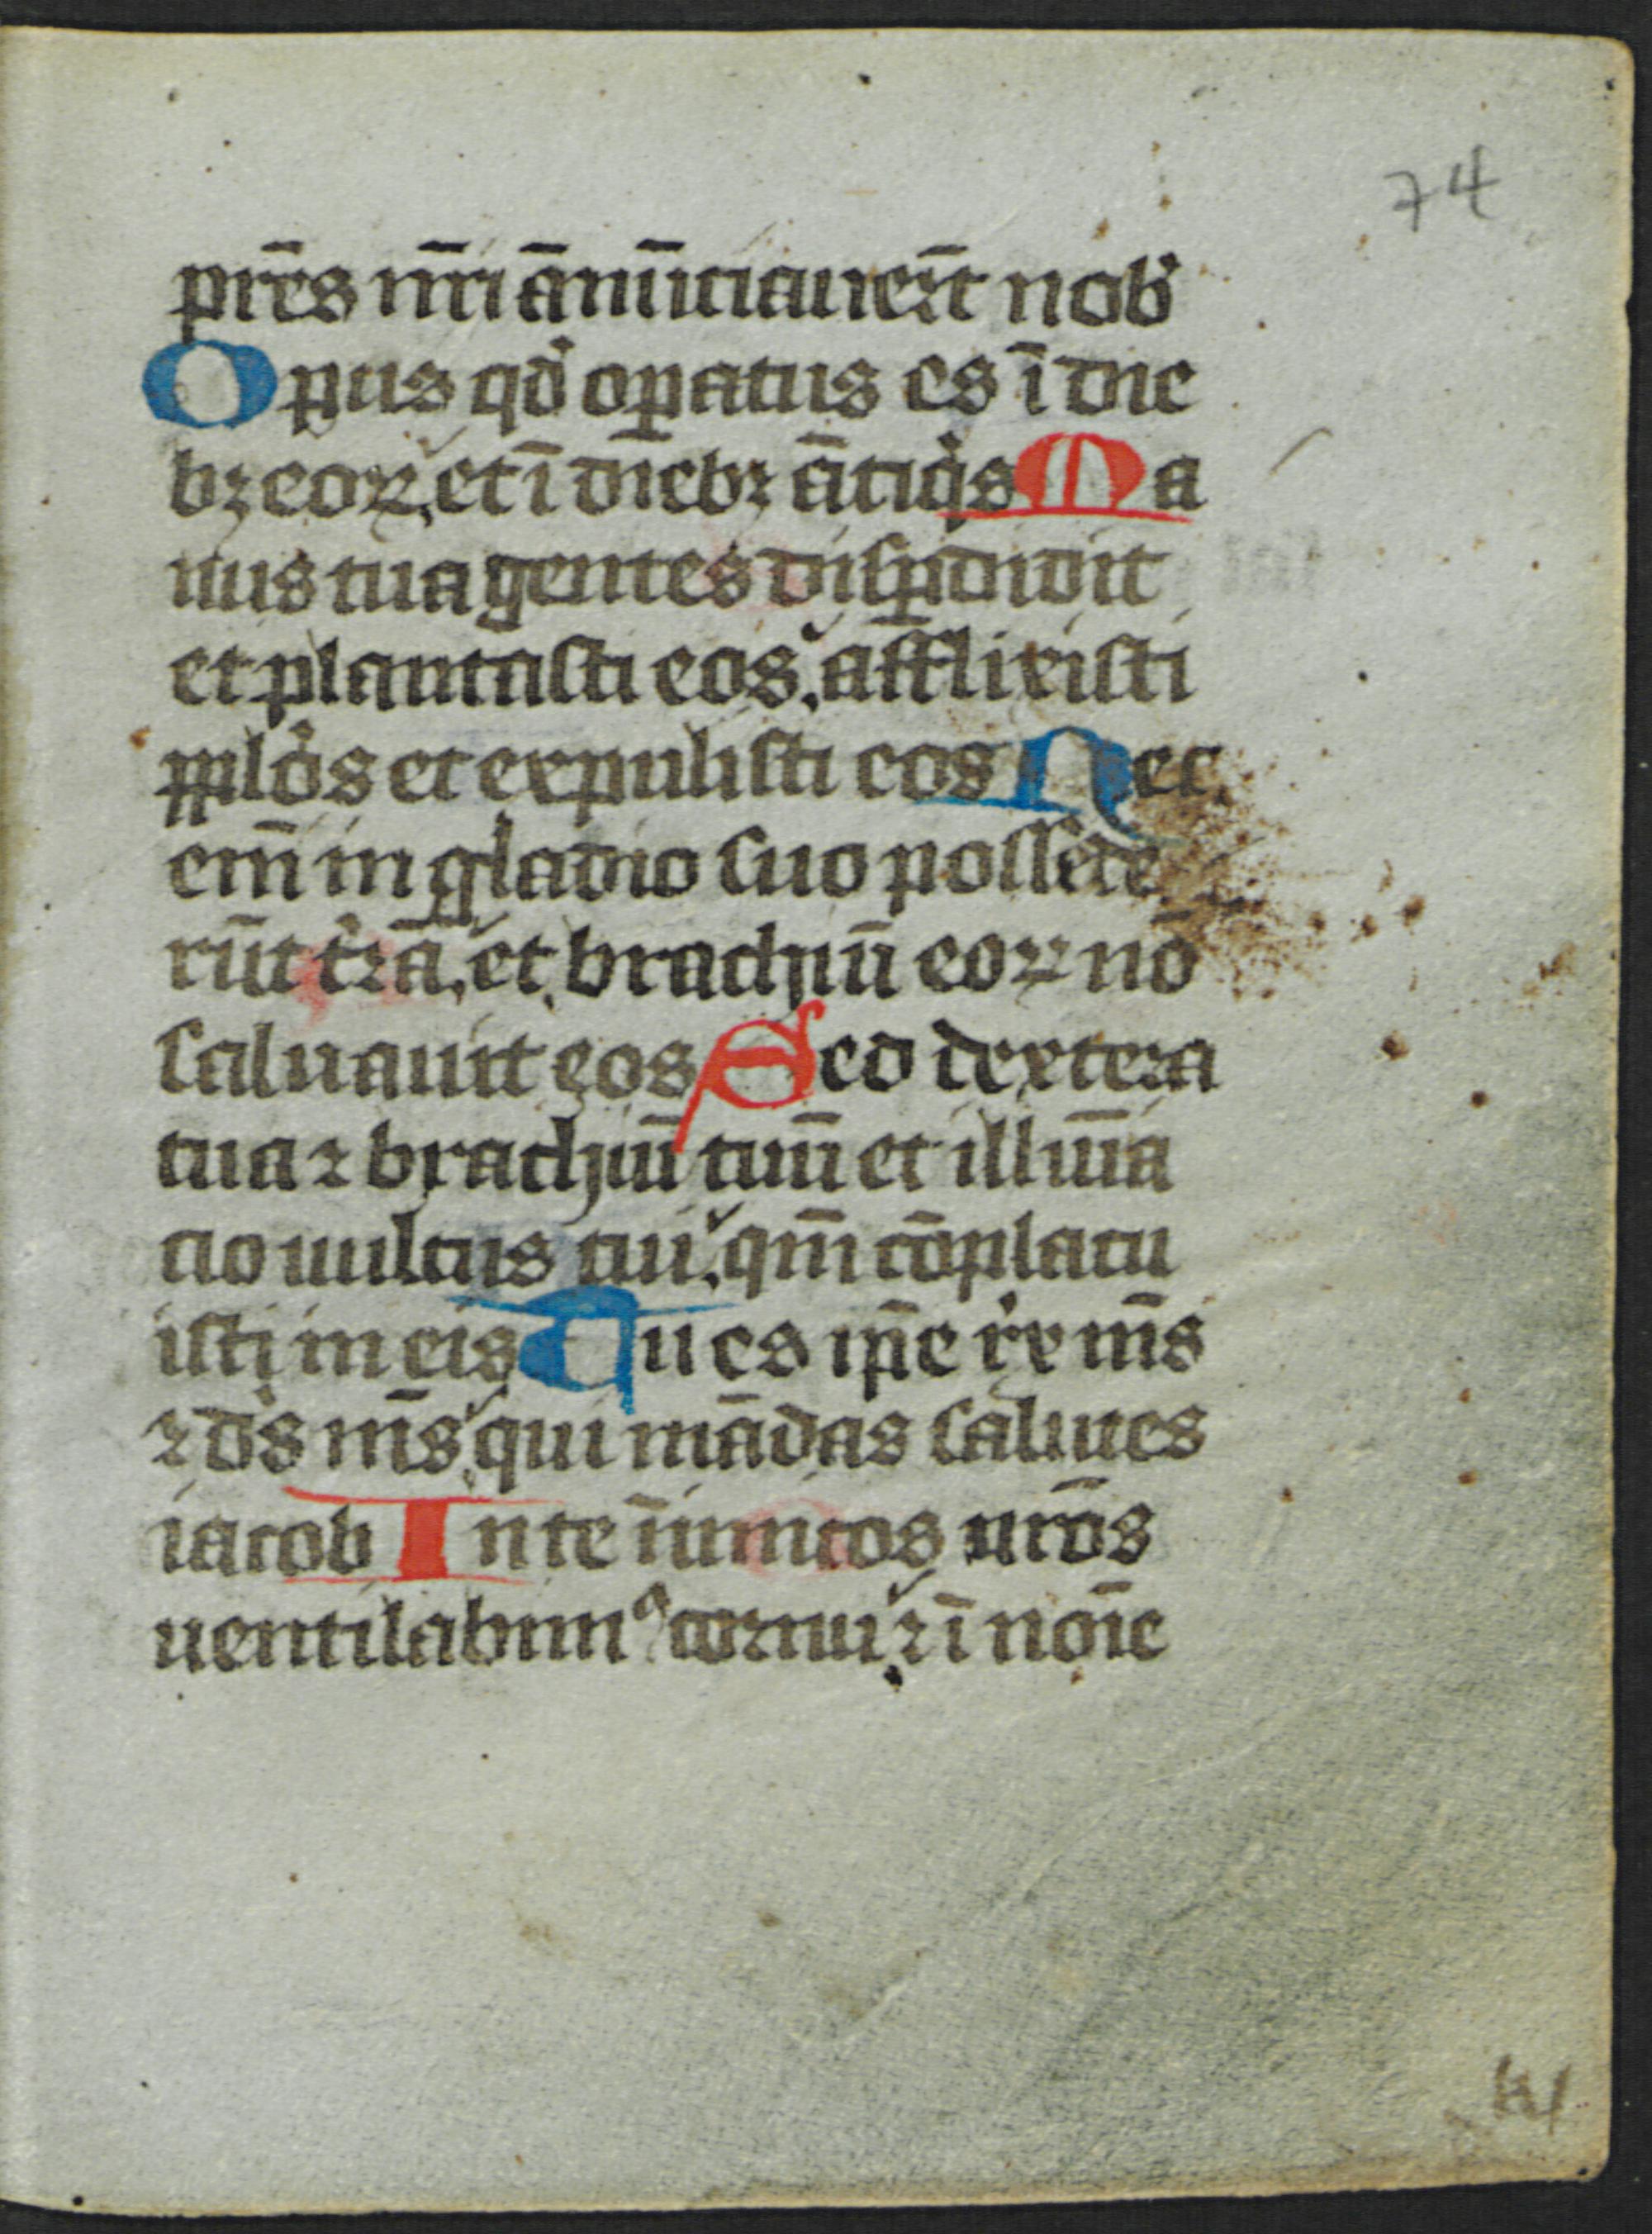 74
pr̄es nr̄i ānūciauer̄t nob̾
Opus qd̾ oꝑatus es ī die
bꝫ eoꝝ et ī dieb̄ꝫ ātiqͥs Ma
nus tua gentes diſꝑdidit
et plantaſti eos, afflixiſti
pplo̾s et expuliſti eos Nec
em̄ in gladio ſuo poſſede
rūt tr̾ā, et brachiū eoꝝ nō
ſaluauit eos Sed dextera
tua ⁊ brachiū tuū et illūīa
cio uultus tui, qm̄ cōplacu
iſti in eis Tu es ip̄e rex m̄s
⁊ ds̾ ms̄ qui mādas ſalutes
iacob In te īimicos nr̄os
uentilabimꝰ cornu, ⁊ ī noīe